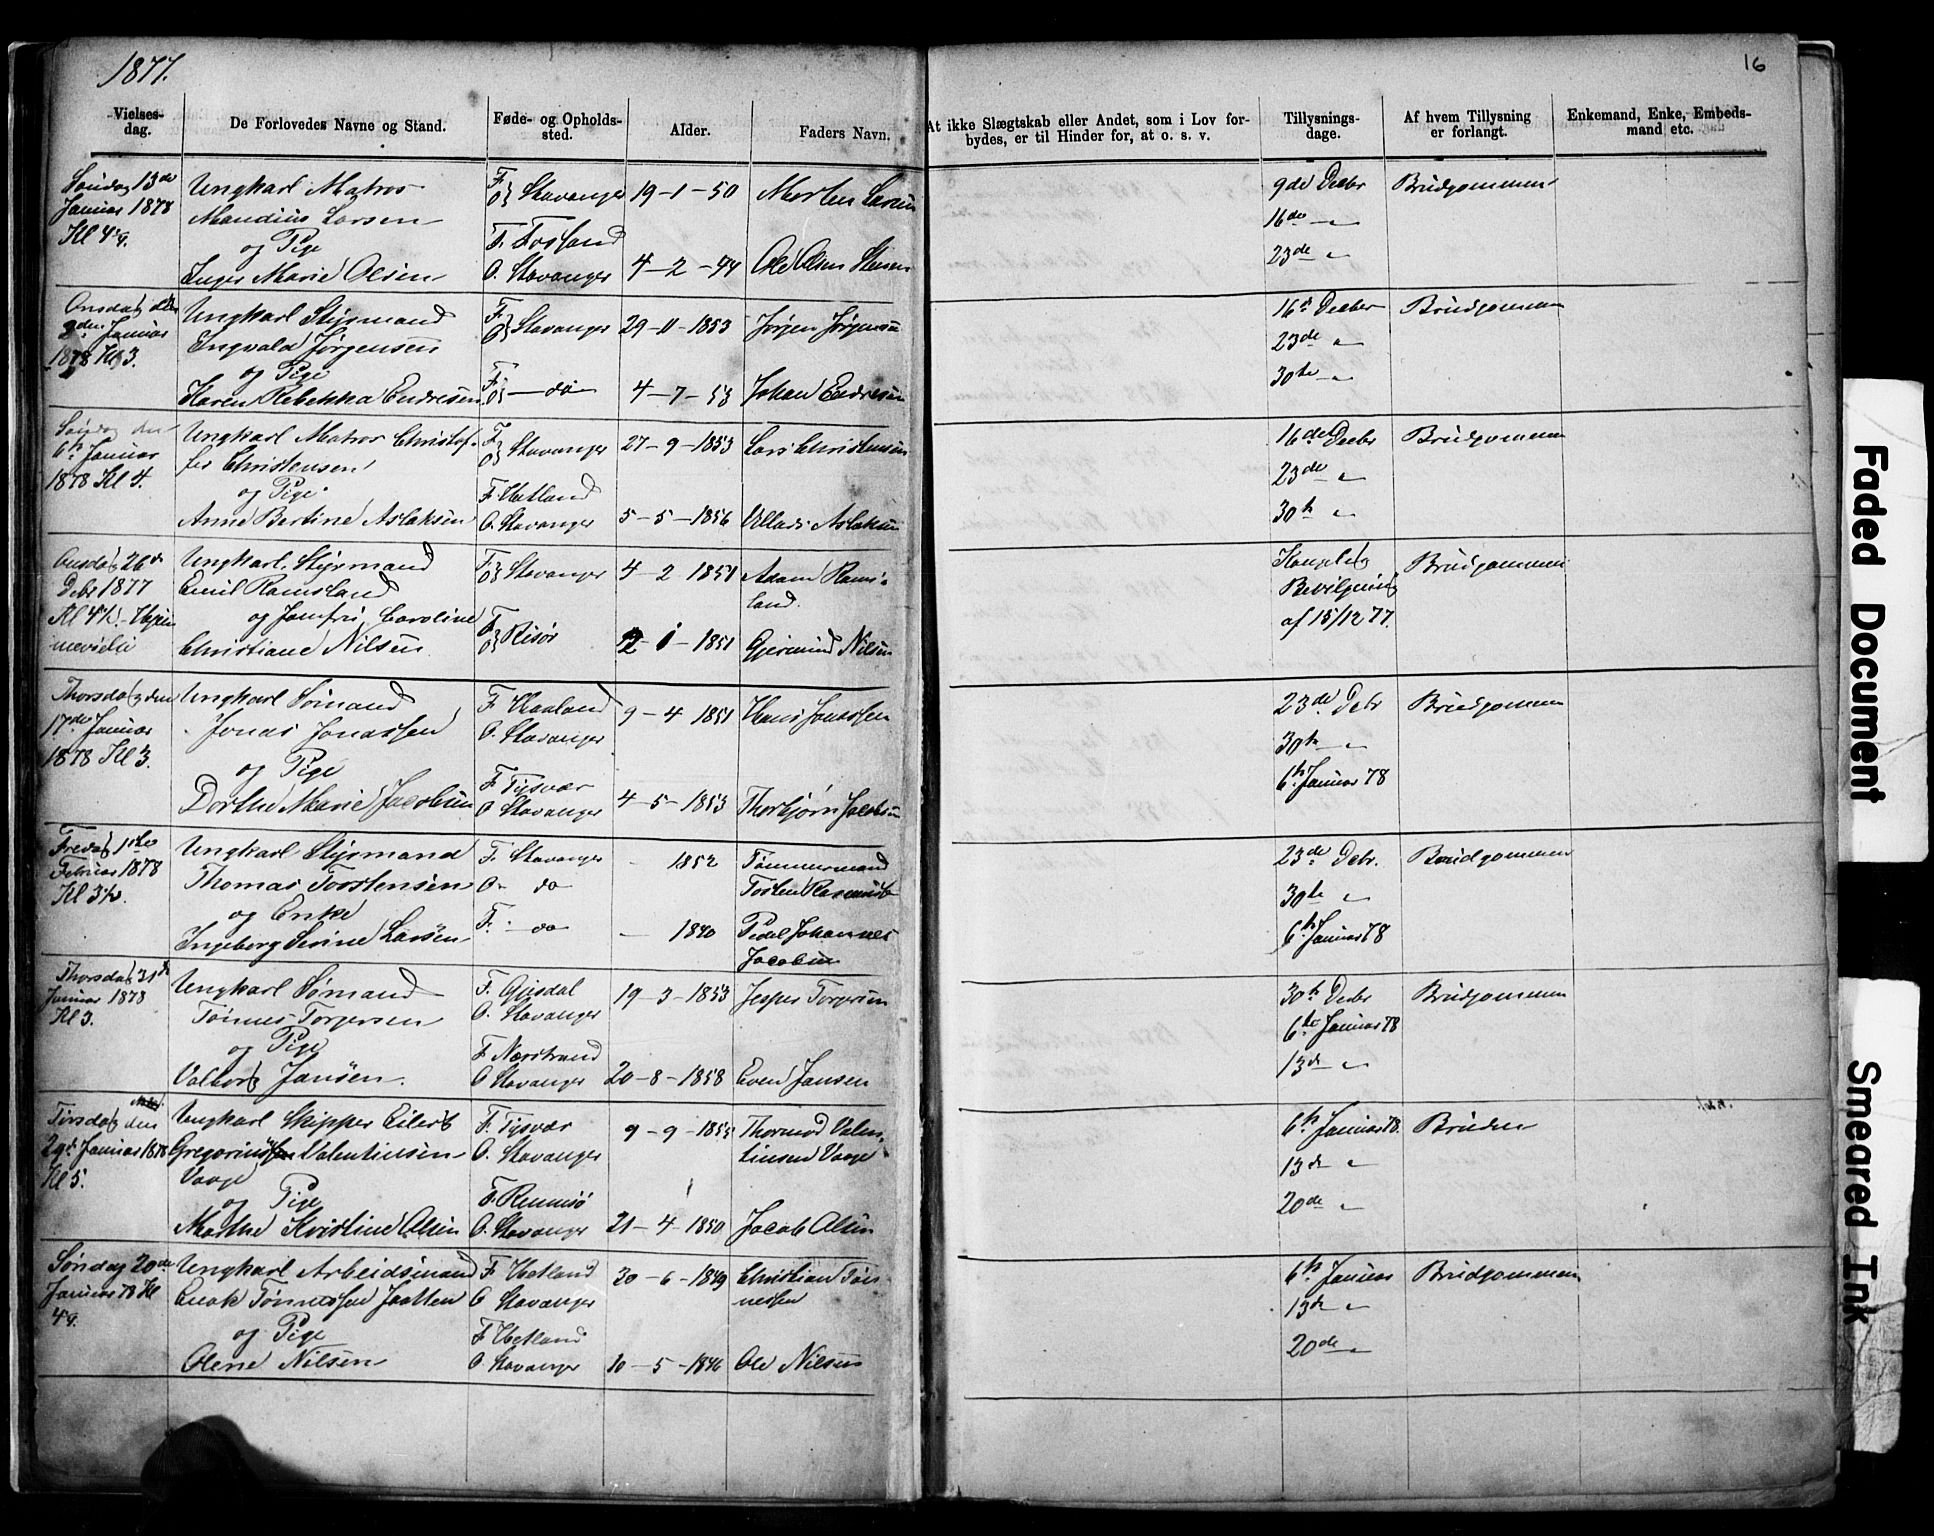 1877.
16
Vielses-
dag.
De Forlovedes Navne og Stand.
Føde- og Opholds-
sted.
Alder.
Faders Navn.
At ikke Slægtskab eller Andet, som i Lov for-
bydes, er til Hinder for, at o. s. v.
Tillysnings-
dage.
Af hvem Tillysning
er forlangt.
Enkemand, Enke, Embeds-
mand etc.
Søndag 13de
Januar 1878
Kl 4
Ungkarl Matros
Mandius Larsen
og Pige
Inger Marie Olsen
F
O } Stavanger
F. Fosland
O. Stavanger
19-1-50
4-2-44
Morten Larsen
Ole Olsen
9de Decbr
16de "
23de "
Brudgommen
Onsdag den
Januar
1878 Kl 3.
Ungkarl Styrmand
Engvald Jørgensen
og Pige
Karen Rebekka Endresen
F
O } Stavanger
F
O } do
29-11-1853
4-7-53
Jørgen Jørgensen
Johan Endresen
16de Decbr
23de "
30te "
Brudgommen
den
6te Januar
1878 Kl 4.
Ungkarl Matros Christof-
fer Christensen
og Pige
Anne Bertine Aslaksen
F
O } Stavanger
F. Hetland
O. Stavanger
27-9-1853
5-5-1856
Lars Christensen
Aslaksen
16de Decbr
23de "
30te "
Brudgommen
Onsdag 26de
Decbr 1877
Kl 4½
Ungkarl Styrmand
Emil Ramsland
og Jomfru Caroline
Christiane Nilsen
F
O } Stavanger
F
O } Risør
4-2-1851
2-1-1851
Adam Rams-
land.
Nilsen
Kongelig
Bevilgning
af 15/12 77.
Brudgommen
Thorsdag den
17de Januar
1878 Kl 3.
Ungkarl Sømand
Jonas Jonassen
og Pige
Dorthe Marie Jacobsen
F. Haaland
O. Stavanger
F. Tysvær
O. Stavanger
9-4-1851
4-5-1853
Hans Jonassen
Thorbjørn Jacobsen
23de Decbr
30te "
6te Januar 78
Brudgommen
Fredag 1ste
Februar 1878
Kl 3½.
Ungkarl Styrmand
Thomas Torstensen
og Enke
Ingeborg Serine Larsen
F. Stavanger
O- do
F. - do
1852
1840
Tømmermand
Tosten
Pedel Johannes
Jacobsen
23de Decbr.
30te "
6te Januar 78
Brudgommen
Thorsdag 31te
Januar 1878
Kl 3.
Ungkarl Sømand
Tønnes Torgersen
og Pige
Valborg Jansen.
F. Gjesdal
O. Stavanger
F. Nærstrand
O Stavanger
19-3-1853
20-8-1858
Jesper Torgersen
Even Jansen
30te Decbr
6te Januar 78
13de "
Brudgommen
Tirsdag den
29de Januar 1878
Kl 5.
Ungkarl Skipper Eilert
Gregoriussen Valentinsen
Vaage
og Pige
Marthe Kristine Olsen
F. Tysvær
O. Stavanger
F. Rennesø
O. Stavanger
9-9-1855
21-4-1850
Thormod Valen-
tinsen Vaage
Jacob Olsen
6te Januar 78.
13de "
20de "
Bruden
Søndag 20de
Januar 78 Kl
4
Ungkarl Arbeidsmand
Enok Tønnessen Jaatten
og Pige
Olene Nilsen
F Hetland
O Stavanger
F Hetland
O. Stavanger
30-6-1849
10-5-1846
Christian Tøn-
nessen
Ole Nilsen
6te Januar
13de "
20de "
Brudgommen
Faded Document
Smeared Ink